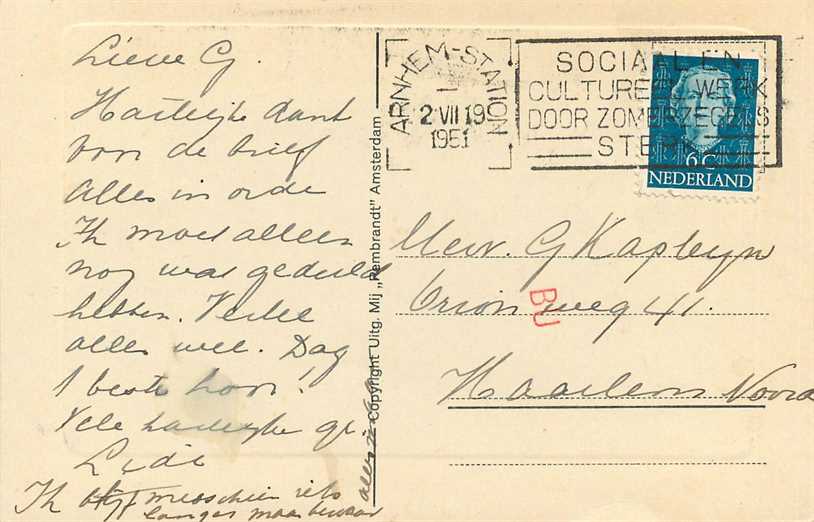 Lieve G.
Hartelijke dank
voor de brief
Alles in orde
Ik moet alleen
nog wat geduld
hebben. Verder
alles wel. Dag
beste hoor!
Vele hartelijke gr.
Lidi
Ik misschien iets
langer maar bewaar
alles
Copyright Uitg. Mij „Rembrandt" Amsterdam
ARNHEM-STATION
2 VII 19
1951
SOCIAAL EN
CULTUREEL WERK
DOOR ZOMERZEGELS
STERK
6 C
NEDERLAND
Mevr. G Kapteyn
Orionweg 41.
BU
Haarlem Noord